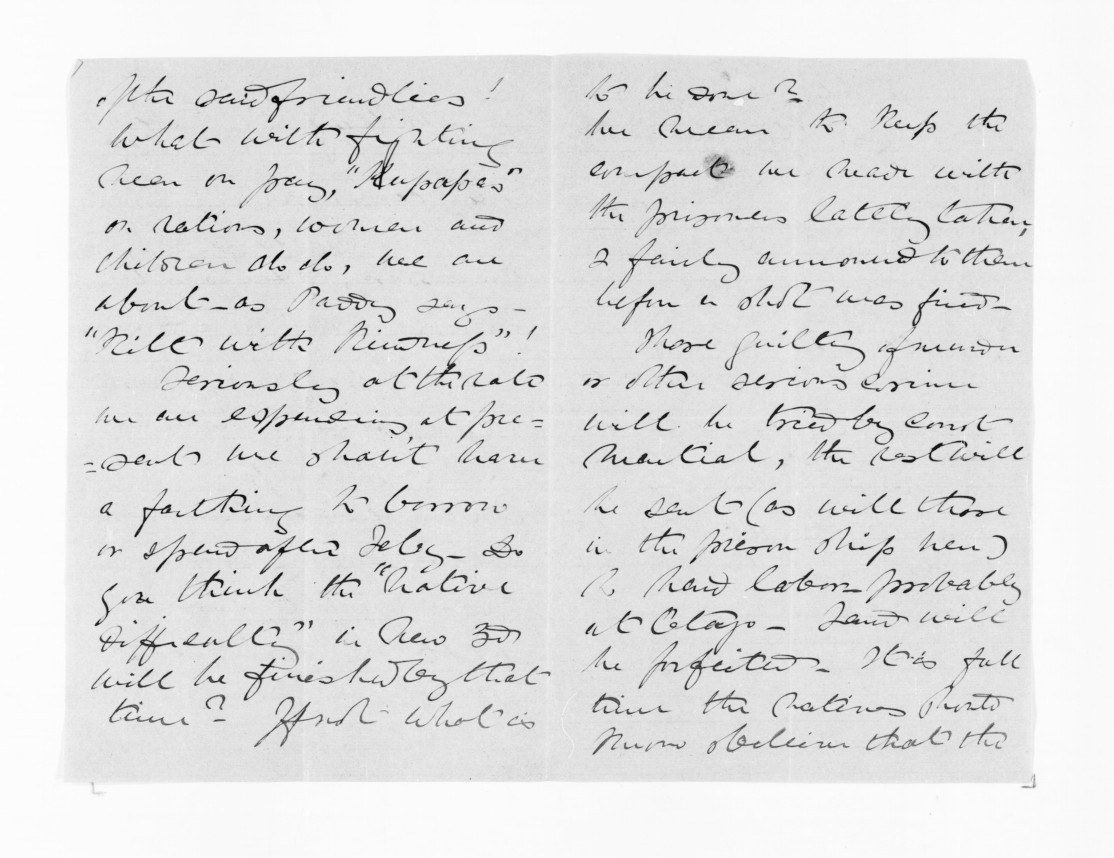 of the said friendlies!
What with fighting
men on pay, "Kupapas"
on rations, women and
children do do, we are
about - as Paddy says -
"Kill with Kindness"!
Seriously at the rate
we are expending at pre=
=sent we shan't have
a farthing to borrow
or spend after Feby - Do
you think the "Native
difficulty" in New Zd
will be finished by that
time? If not what is
to be done?
We mean to keep the
compact we made with
the prisoners lately taken,
& fairly announced to them
before a shot was fired -
Those guilty of murder
or other serious crime
will be tried by Court
Martial, the rest will
be sent (as will those
in the prison ship here)
to hard labor probably
at Otago - Land will
be forfeited - It is full
time the natives should
know believe that the